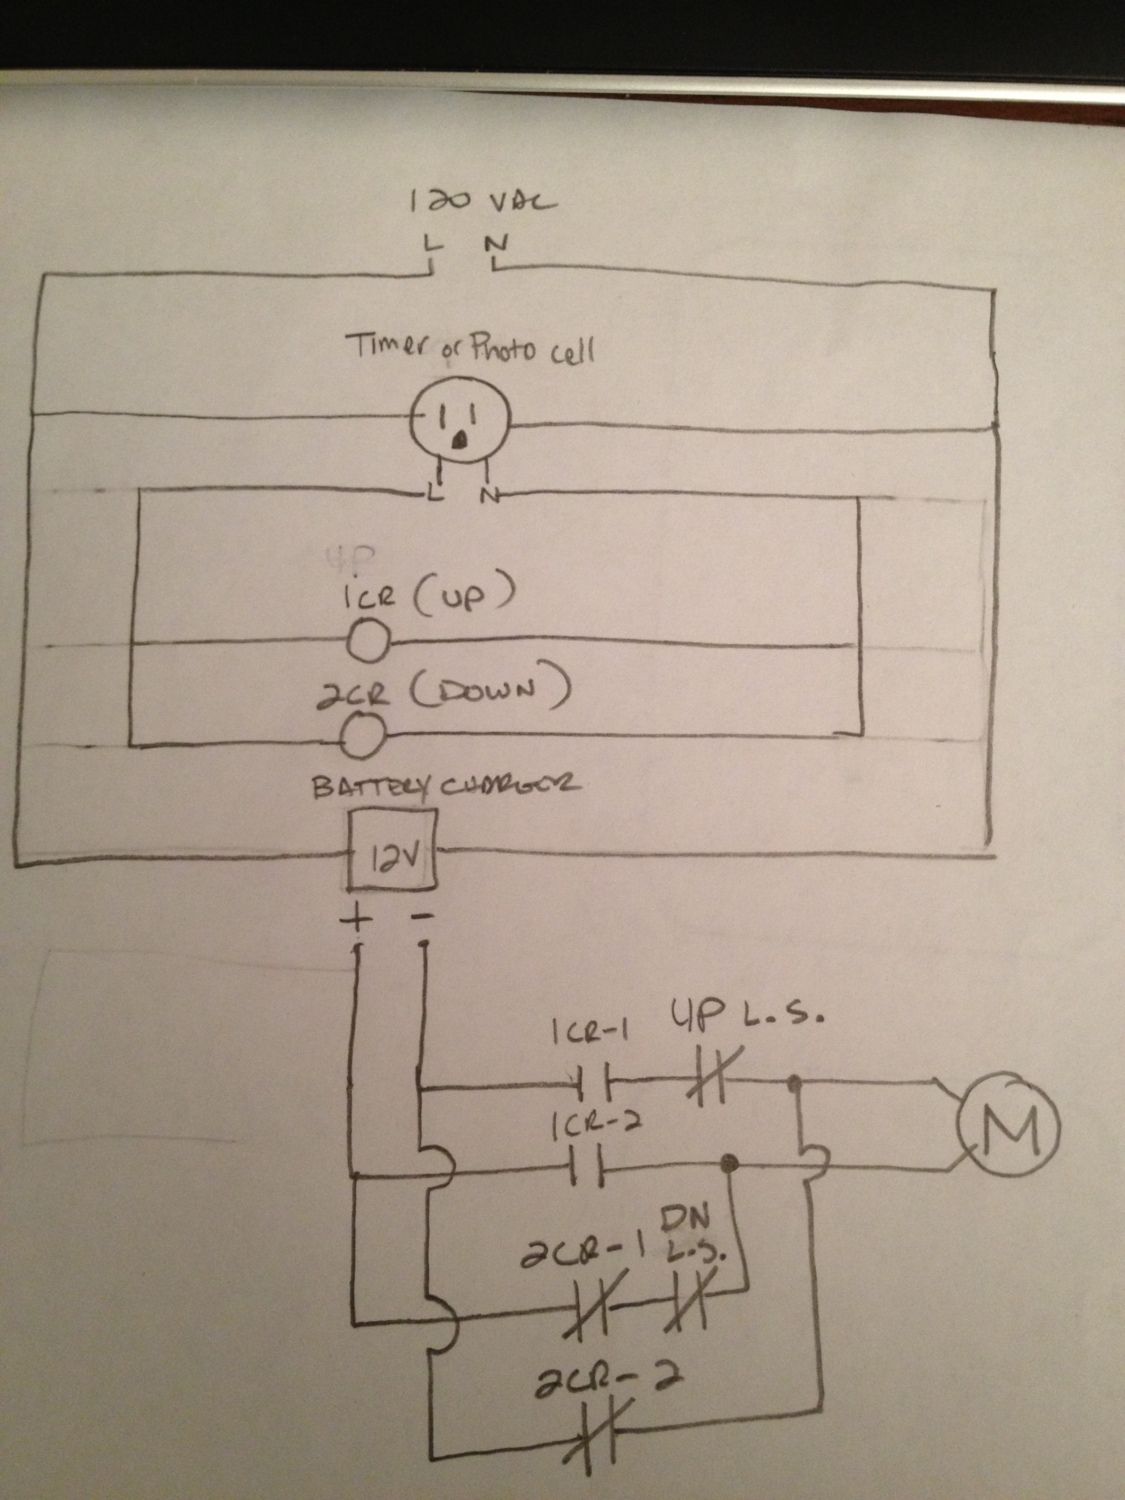 120 VAC
L N
Timer or Photo cell
L N
UP
1CR (UP)
2CR (DOWN)
BATTERY CHARGER
12V
+ -
1CR-1 UP L.S.
1CR-2
M
2CR-1 DN L.S.
2CR-2